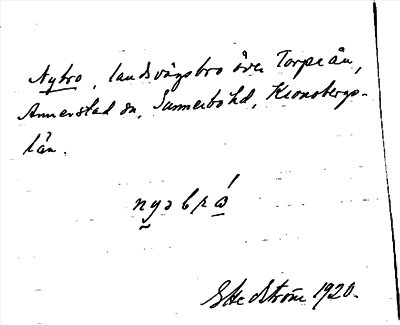 Nybro, landsvägsbro över Torpsån,
Annerstad sn, Sunnerbo hd, Kronobergs-
län.
nyəbró
G Hedström 1920.